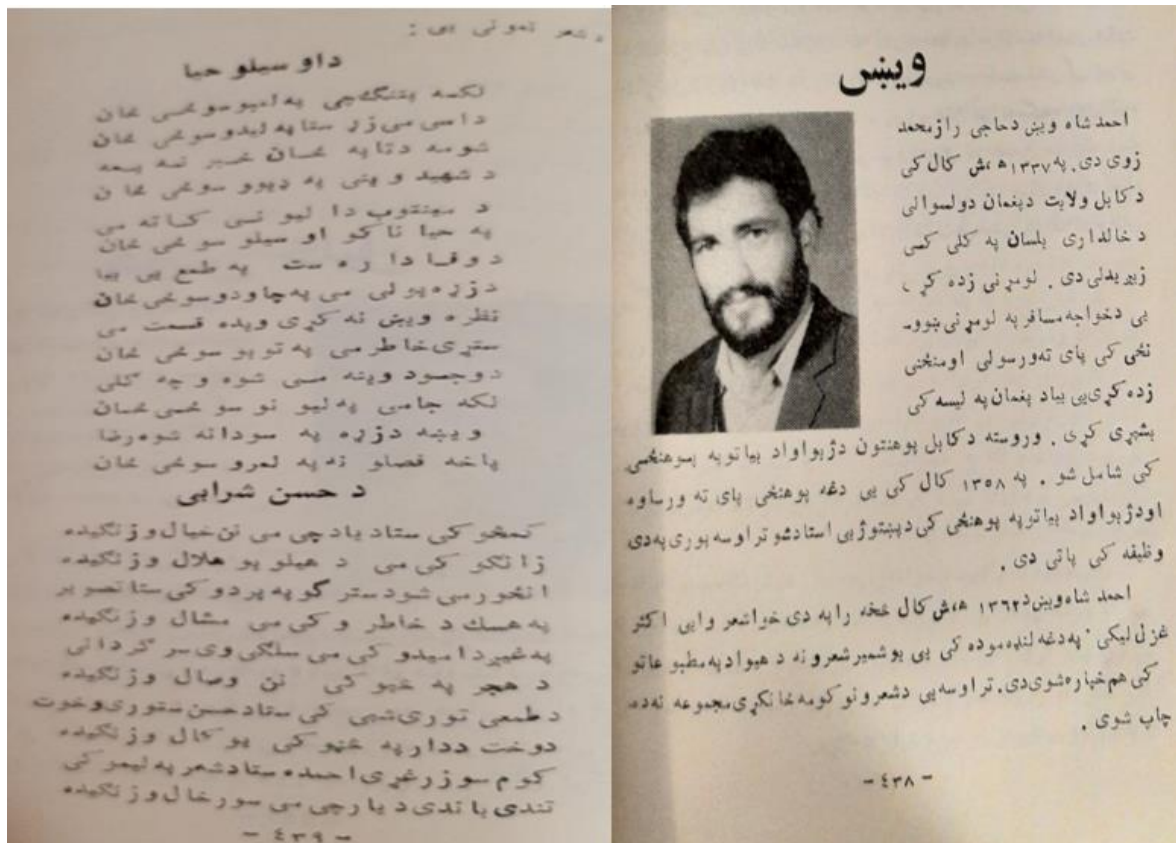 ویښ
احمد شاه ویښ دحاجی رازمحمد
زوی دی. په ۱۳۳۷ ه،ش کال کی
دکابل ولایت دپغمان دولسوالی
دخالداری پلسان په کلی کسی
زیږیدلی دی . لومړنی زده کړ ،
یی دخواجه مسافر په لومړنی ښوو۔
نځی کی پای ته ورسولی اومنځنی
زده کړی یی بیاد پغمان په لیسه کی
بشپړی کړی . وروسته دکابل پوهنتون دژبواواد بیاتوپه پوهنځی
کی شامل شو . په ۱۳۵۸ کال کی یی دغه پوهنځی پای ته ورساوه
اودژبواواد بیاتوپه پوهنځی کی دپښتوژبی استادشو تراوسه پوری په دی
وظیفه کی پاتی دی .
احمد شاه ویښ د ۱۳۶۲ ه،ش کال څخه راپه دی خواشعر وایی اکثر
غزل لیکی ' په دغه لنډه موده کی یی یوشمیر شعرونه د هیواد په مطبوعاتو
کی هم خپاره شوی دی. تراوسه یی دشعرونو کومه ځانګړی مجموعه نه ده
چاپ شوی .
- ۴۳۸ -
دشعر نمونی یی :
داو سیلو حیا
لکه پتنګ چی په لمبو سوځی ځان
داسی می زړه ستا په لیدو سوځی ځان
شومه دتا په ځان خبر نه یمه
د شهید وینی په ډیوو سوځی ځان
د مینتوب دا لیو نی کاته می
په حیا ناکو او سیلو سو ځی ځان
دوفا دا ره ست په طمع یی بیا
دزړه پولی می په چاودو سوځی ځان
نظره ویښ نه کړی ویده قسمت می
ستړی خاطر می په توپو سوځی ځان
دوجود وینه می شوه وچه ګلی
لکه جامی په لیو نو سو ځی ځان
ویښه دزړه په سودا نه شوه رضا
پاخه فصلو نه په لمرو سوځی ځان
د حسن شرابی
کمڅو کی ستاد یاد چی می نن خیال وزنګیده
زانګو کی می د هیلو یو هلال وزنګیده
انځور می شو دستر ګو په پردو کی ستا تصویر
په هسک د خاطر و کی می مشال وزنګیده
په غیږ دامیدو کی می سلګی وی سر ګردانی
د هجر په څپو کی نن وصال وزنګیده
دطمعی توری شپی کی ستاد حسن ستوری وخوت
دوخت ددار په څڼو کی یو کال وزنګیده
کوم سوز رغړی احمده ستاد شعر په لیمر کی
تندی باندی دیار چی می سور خال وزنګیده
- ۴۳۹ -